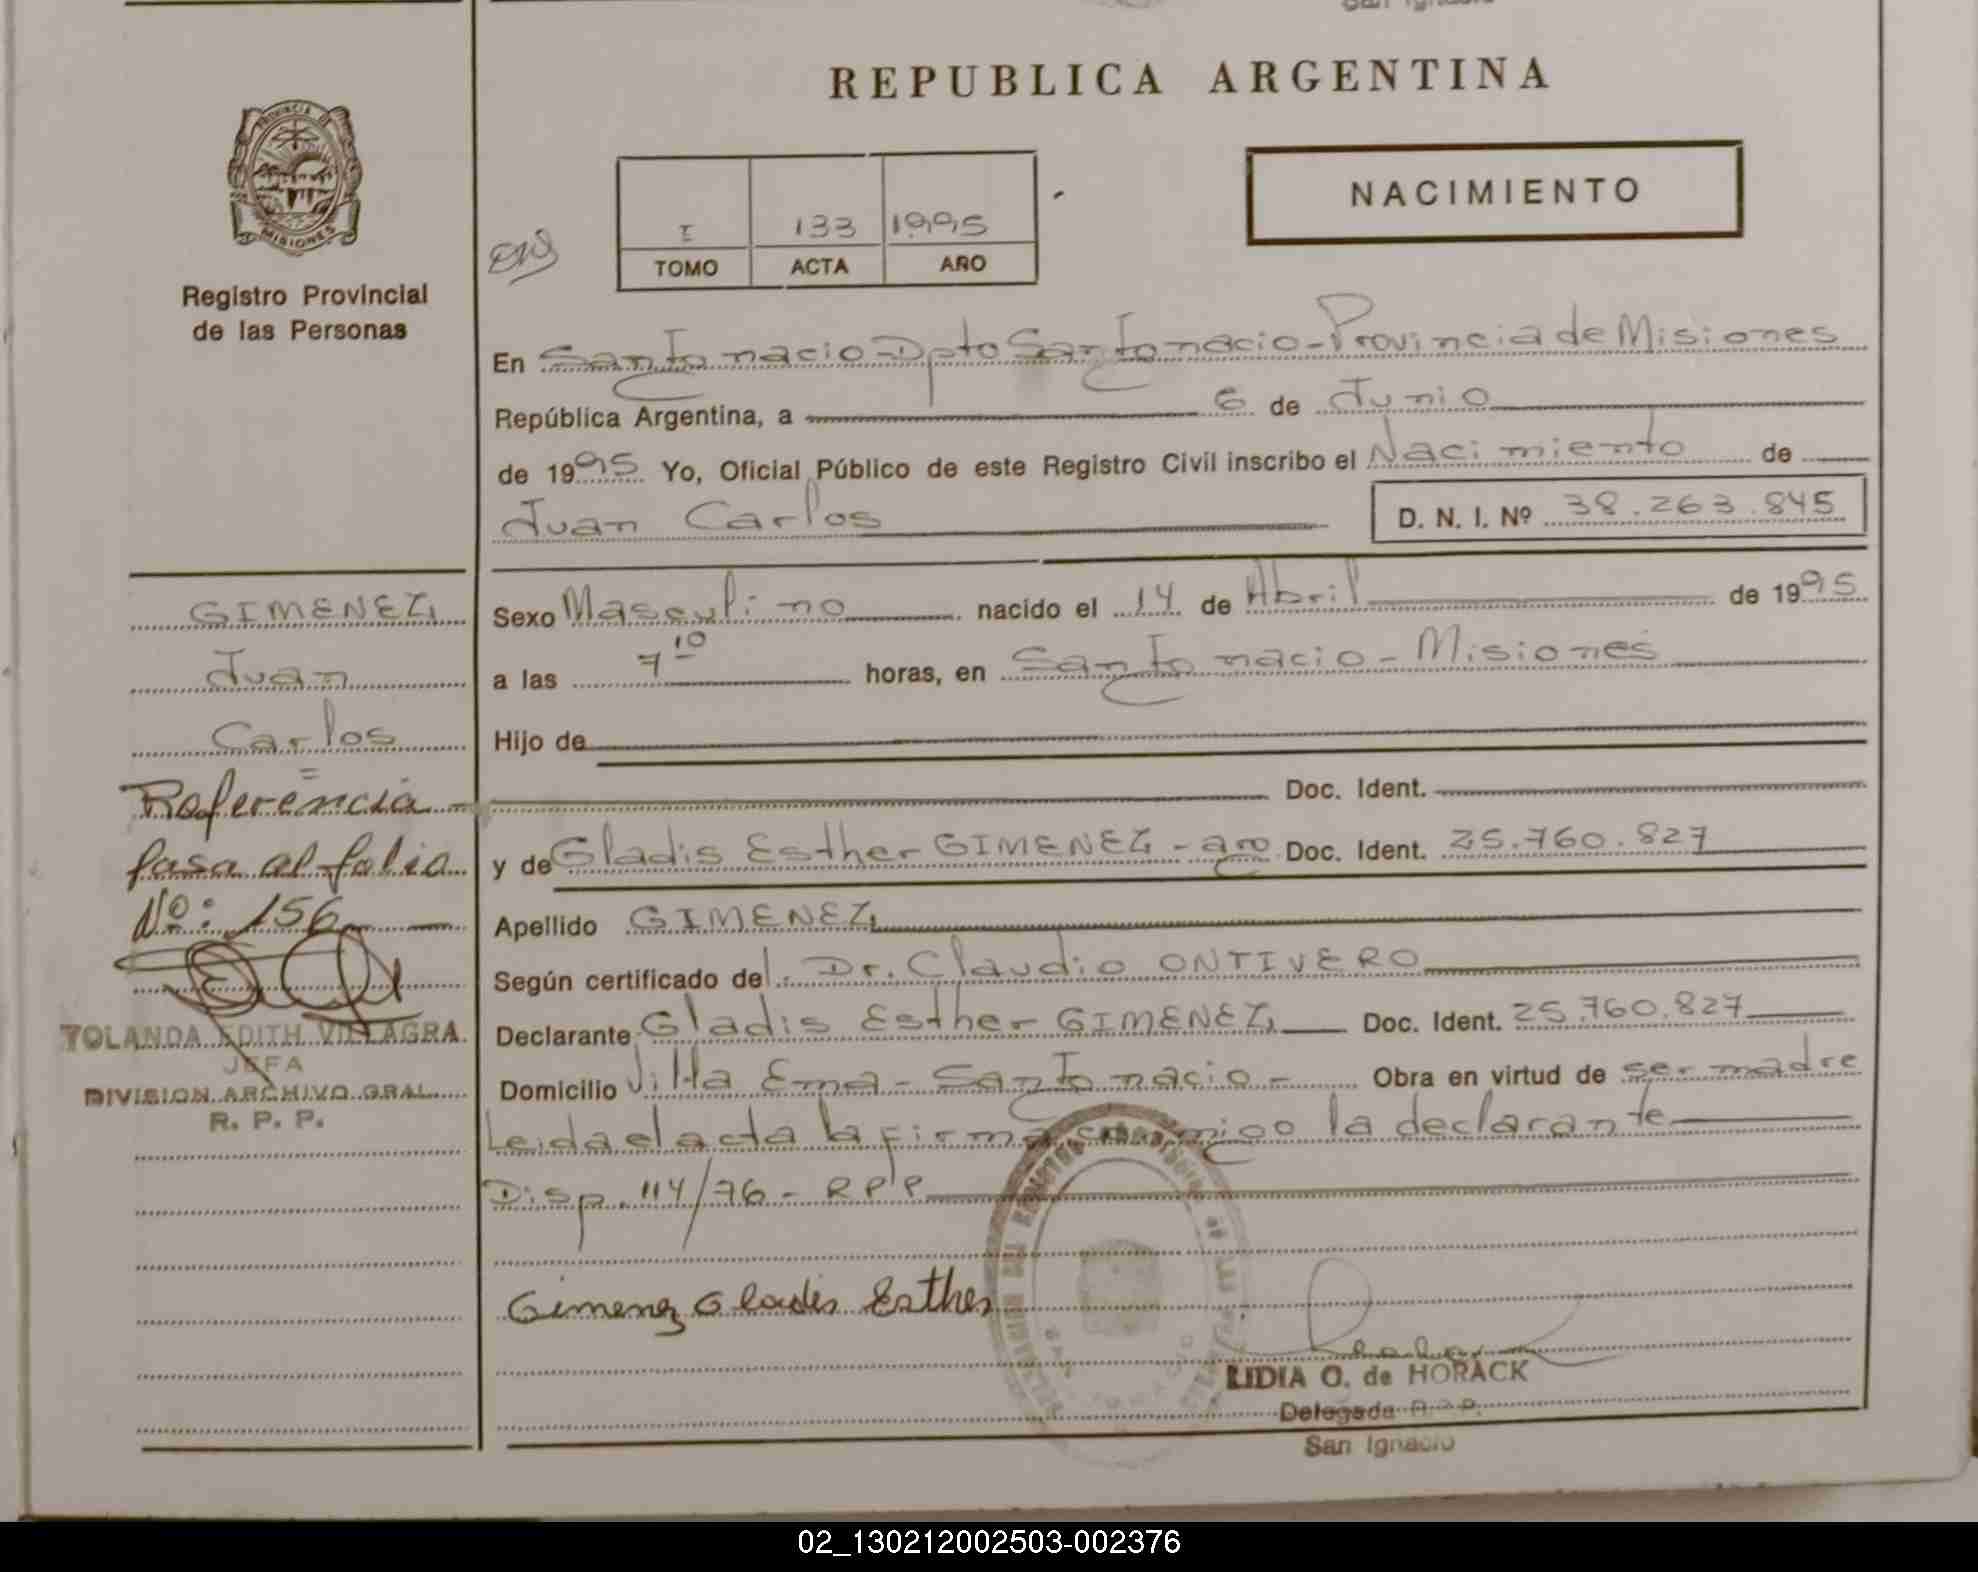 San Ignacio
REPUBLICA ARGENTINA
PROVINCIA DE
MISIONES
NACIMIENTO
I 133 1995
TOMO ACTA AÑO
Registro Provincial
de las Personas
En San Ignacio - Dpto San Ignacio - Provincia de Misiones
República Argentina, a 6 de Junio
de 1995 Yo, Oficial Público de este Registro Civil inscribo el Nacimiento de
Juan Carlos D. N. I. Nº 38.263.845
Sexo Masculino nacido el 14 de Abril de 1995
a las 7 10 horas, en San Ignacio - Misiones
Hijo de
Doc. Ident.
y de Gladis Esther GIMENEZ - arg Doc. Ident. 25.760.827
Apellido GIMENEZ
Según certificado del. Dr. Claudio ONTIVERO
Declarante Gladis Esther GIMENEZ Doc. Ident. 25.760.827
Domicilio Villa Ema - San Ignacio - Obra en virtud de ser madre
Leida el acta la firma conmigo la declarante
Disp. 114/76 - RPP
Gimenez Gladis Esther
LIDIA O. de HORACK
Delegada R. P. P.
San Ignacio
GIMENEZ
Juan
Carlos
Referencia
pasa al folio
Nº: 156
YOLANDA EDITH VILLAGRA
JEFA
DIVISION ARCHIVO GRAL
R. P. P.
02_130212002503-002376